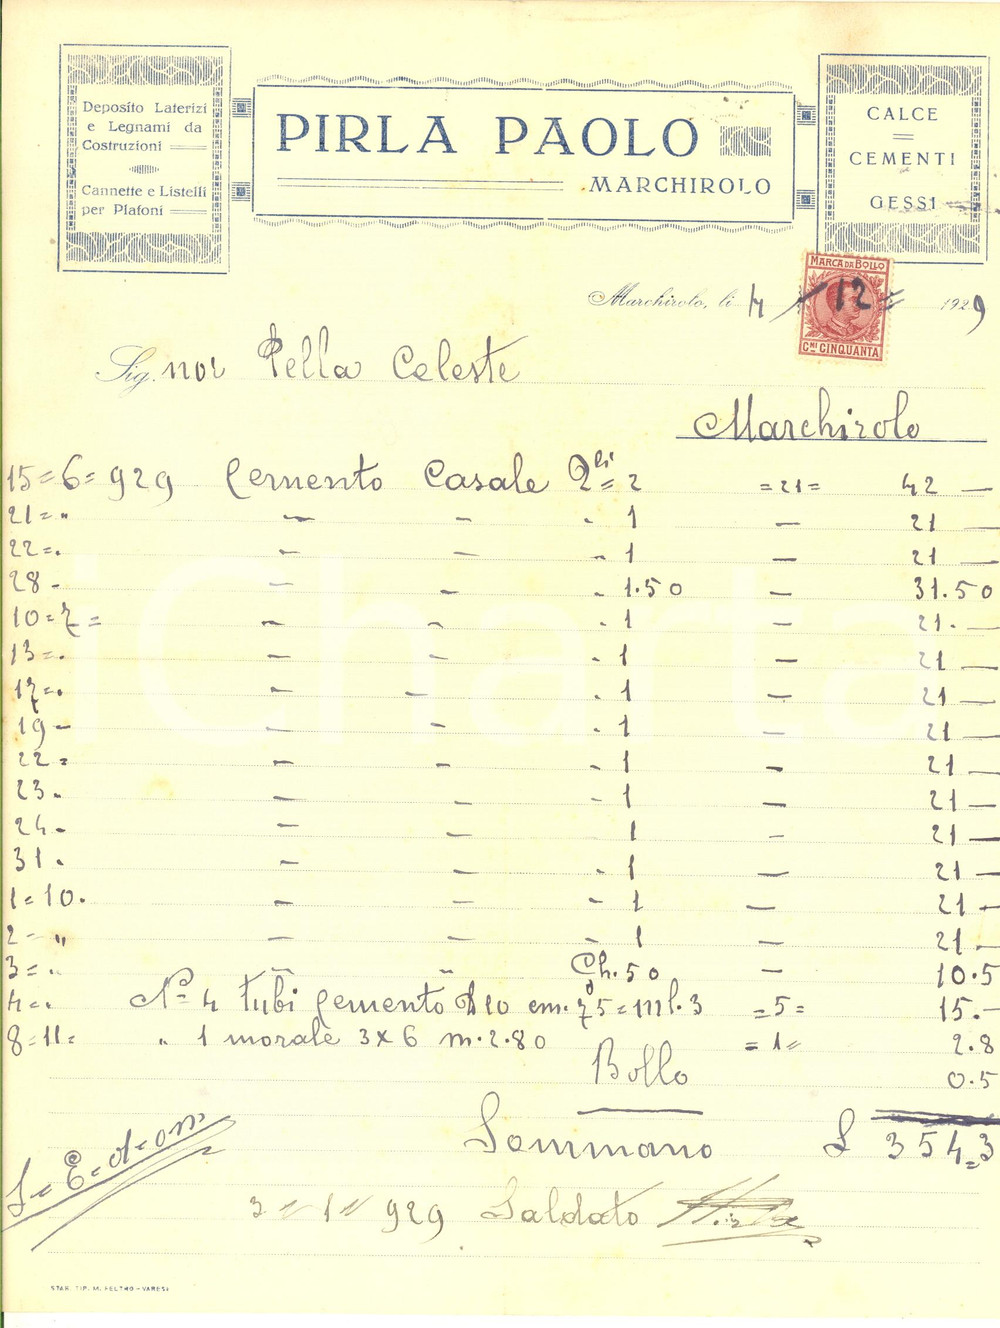 Deposito Laterizi
e Legnami da
Costruzioni
Cannette e Listelli
per Plafoni
PIRLA PAOLO
MARCHIROLO
CALCE
CEMENTI
GESSI
MARCA DA BOLLO
CMI CINQUANTA
Marchirolo, li 4 12 1929
Sig.nor Pella Celeste
Marchirolo
15=6=929 Cemento Casale Qli= 2 =21= 42 —
21=" — — " 1 — 21 —
22=. — — " 1 — 21 —
28 - — — " 1.50 — 31.50
10=7= — — " 1 — 21.—
13=. — — " 1 — 21 —
17=. — — " 1 — 21 —
19 - — — " 1 — 21 —
22 = — — " 1 — 21 —
23 - — — " 1 — 21 —
24 - — — 1 — 21 —
31 . — — " 1 — 21 —
1=10. — — " 1 — 21 —
2 - " — — " 1 — 21.—
3=" — " Ch.50 — 10.5
4=. No= 4 tubi cemento 10 cm.75=ml.3 =5= 15.—
8=11= " 1 morale 3x6 m.2.80 =1= 2.8
Bollo 0.5
Sommano L 354=3
S=E=d=om
3=1=929 Saldato Pirla
iCharta
STAB. TIP. M. FELTRO - VARESE